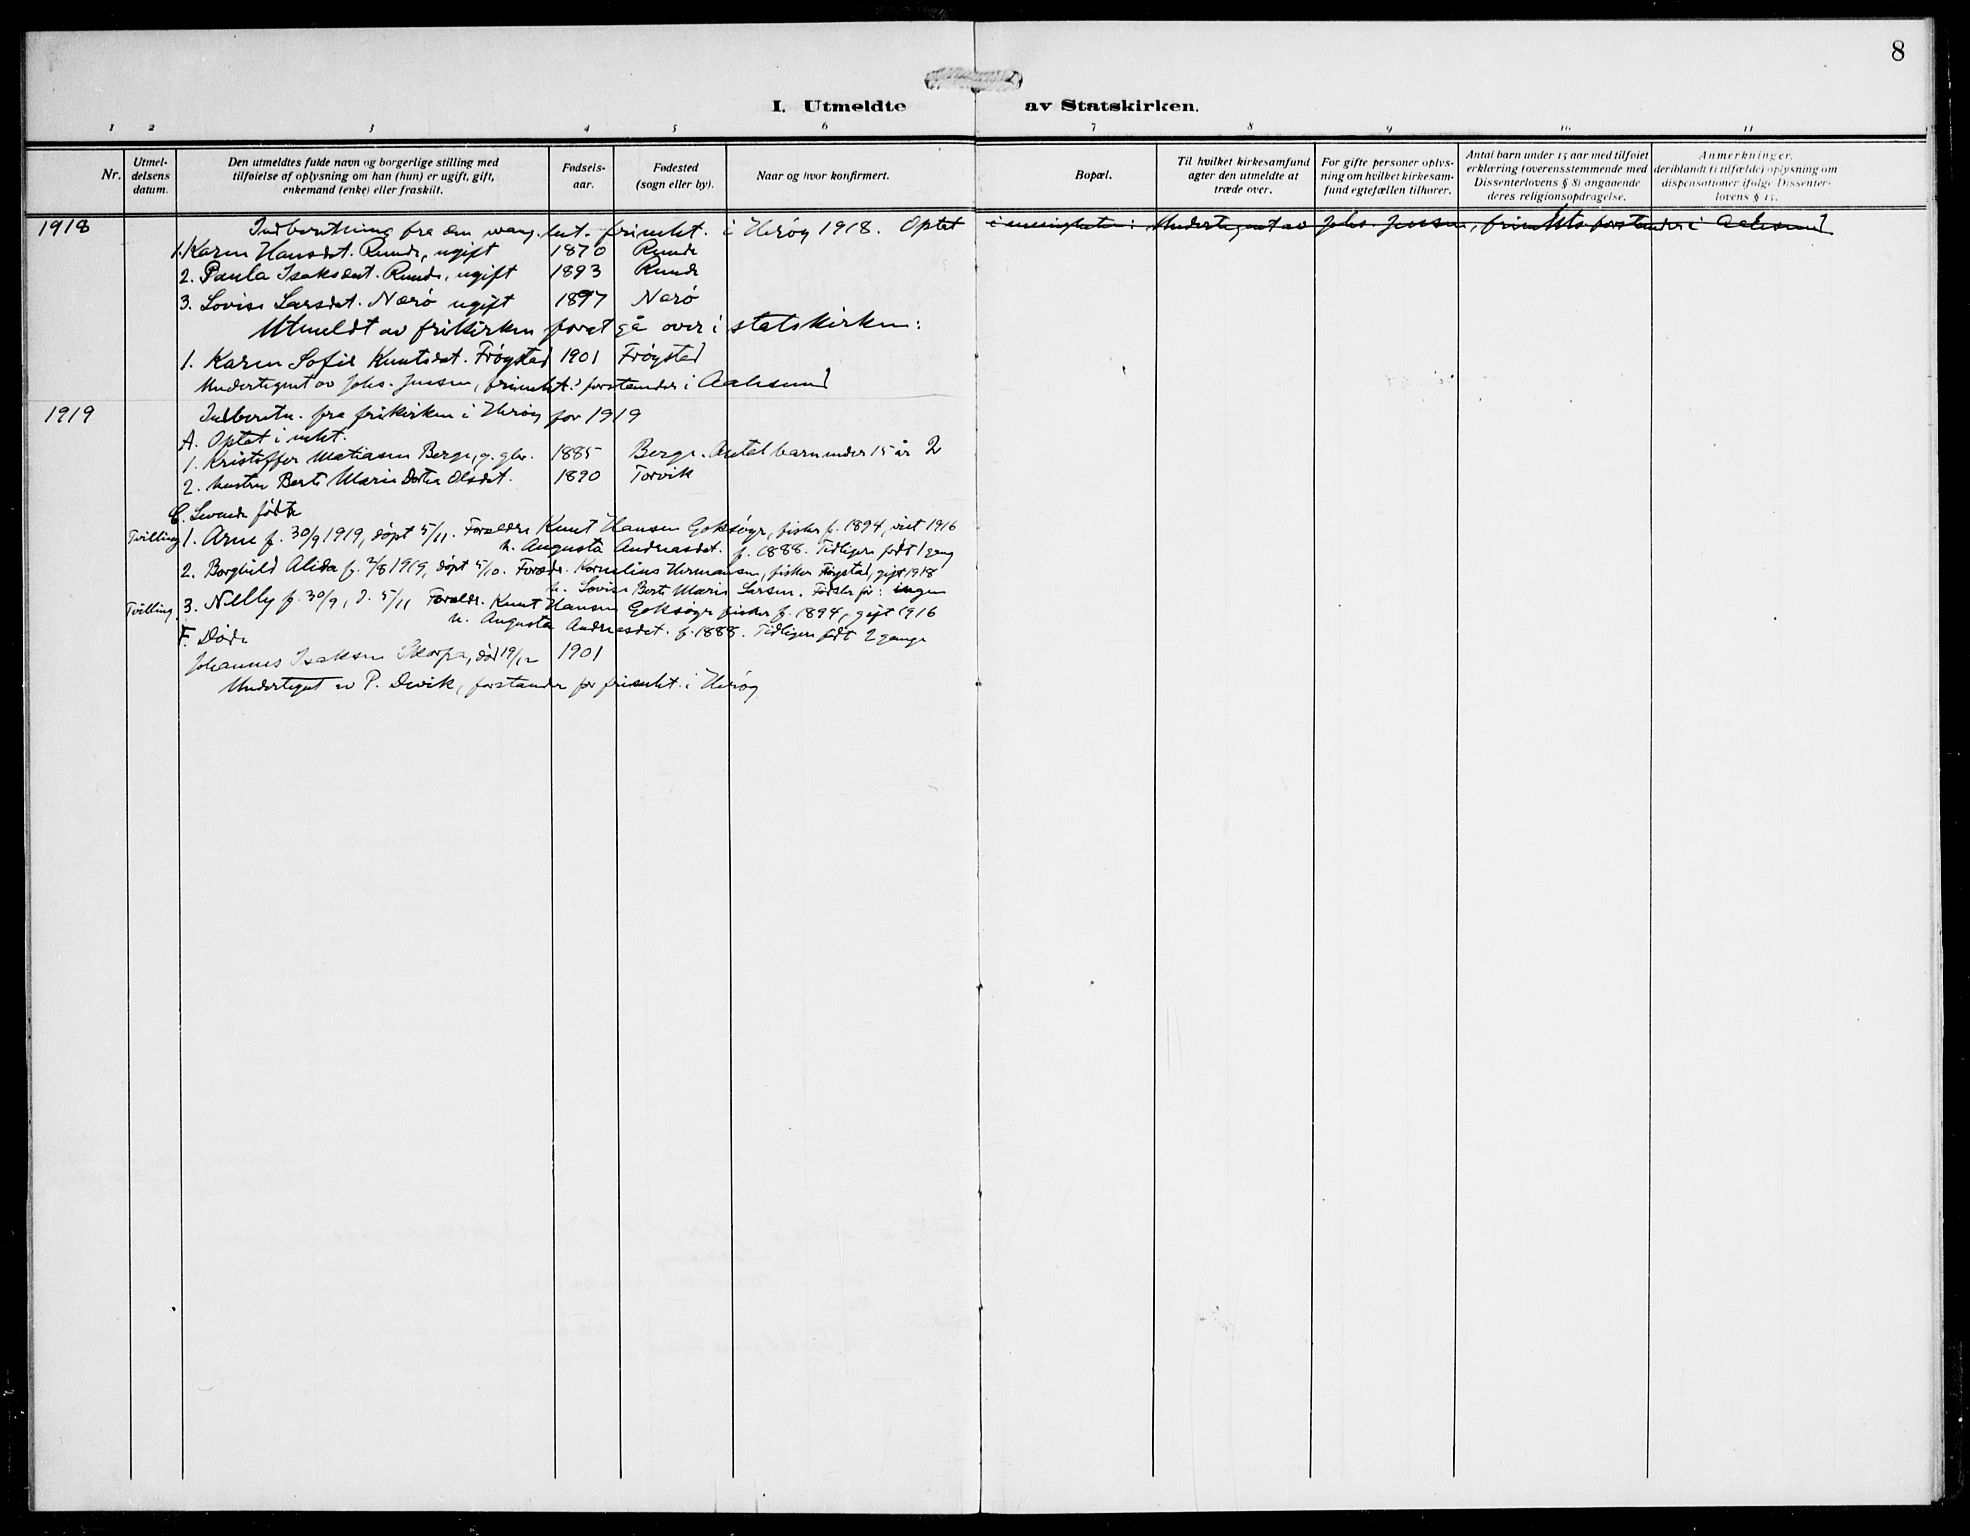 8
I. Utmeldte av Statskirken.
1 2 3 4 5 6 7 8 9 10 11
Nr.
Utmel-
delsens
datum.
Den utmeldtes fulde navn og borgerlige stilling med
tilføielse af oplysning om han (hun) er ugift, gift,
enkemand (enke) eller fraskilt.
Fødsels-
aar.
Fødested
(sogn eller by).
Naar og hvor konfirmert.
Bopæl.
Til hvilket kirkesamfund
agter den utmeldte at
træde over.
For gifte personer oplys-
ning om hvilket kirkesam-
fund egtefællen tilhører.
Antal barn under 15 aar med tilføiet
erklæring (overensstemmende med
Dissenterlovens § 8) angaaende
deres religionsopdragelse.
Anmerkninger,
deriblandt (i tilfælde) oplysning om
dispensationer ifølge Dissenter-
lovens § 15.
1918 Indberetning fra den evang. lut. frimkt. i Herøy 1918. Optat i menigheten: Undertegnet av Johs. Jensen, frimkts forstander i Aalesund
1. Karen Hansdat. Runde, ugift 1870 Runde
2. Paula Isaksdat. Runde, ugift 1893 Runde
3. Lovise Larsdat. Nærø ugift 1897 Nærø
Utmeldt av frikirken forat gå over i statskirken:
1. Karen Sofie Knutsdat. Frøystad 1901 Frøystad
Undertegnet av Johs. Jensen, frimkt.s forstander i Aalesund
1919 Indberetn. fra frikirken i Herøy for 1919
A. Optat i mkt.
1. Kristoffer Matiasen Berge, g. gbr. 1885 Berge. Antal barn under 15 år 2
2. hustru Berte Marie Dortea Olsdat. 1890 Torvik
C. Levende fødte
Tvilling 1. Arne f. 30/9 1919, døpt 5/11. Forældre Knut Hansen Goksøyr, fisker f. 1894, viet 1916
h. Augusta Andreasdat. f. 1888. Tidligere født 1 gang
2. Borghild Alida f. 7/8 1919, døpt 5/10. Foræld. Kornelius Hermansen, fisker Frøystad, gift 1918
h. Lovise Berte Marie Larsen. Fødsler før: ingen
Tvilling 3. Nelly f. 30/9, d. 5/11 Foreldr. Knut Hansen Goksøyr fisker f. 1894, gift 1916
h. Augusta Andreasdat. f. 1888. Tidligere født 2 gange
F. Døde
Johannes Isaksen Skorpa, død 19/12 1901
Undertegnet av P. Devik, forstander for frimkt. i Herøy